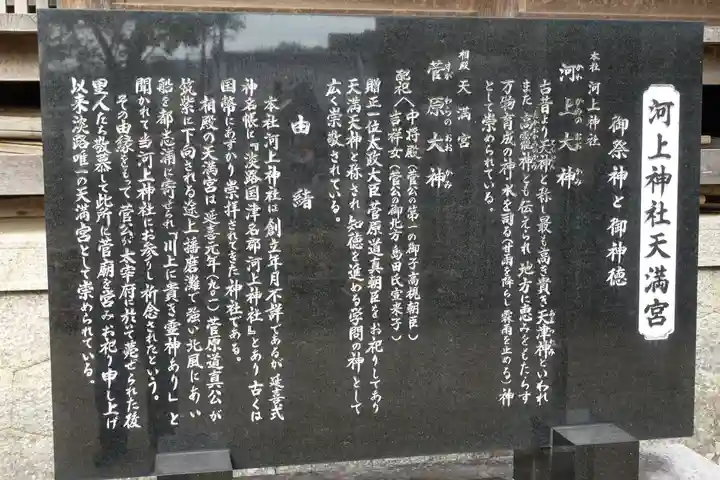 河上神社天満宮
御祭神と御神徳
本社 河上神社
河上大神
かわ かみの おお かみ
古昔より天神と称し最も高き貴き天津神といわれ
また高龗神とも伝えられ 地方に恵みをもたらす
万物育成の神・水を司る(甘雨を降らし霖雨を止める)神
として崇められている。
相殿 天満宮
菅原大神
すが わらの おお かみ
配祀 中将殿(菅公の第一の御子高視朝臣)
吉祥女(菅公の御北方 島田氏宣来子)
贈正一位太政大臣菅原道真朝臣をお祀りしてあり
天満天神と称され 知徳を進める学問の神として
広く崇敬されている。
由緒
本社河上神社は創立年月不詳であるが延喜式
神名帳に『淡路国津名郡河上神社』とあり古くは
国幣にあずかり崇拝されてきた神社である。
相殿の天満宮は延喜元年(九〇一)菅原道真公が
筑紫に下向される途上播磨灘で強い北風にあい
船を都志浦に寄せられ『川上に貴き霊神あり』と
聞かれて当河上神社にお参りし祈念されたという。
その由縁をもって菅公が太宰府に於いて薨ぜられた後
里人たち敬慕して此所に菅廟を営みお祀り申し上げ
以来淡路唯一の天満宮として崇められている。